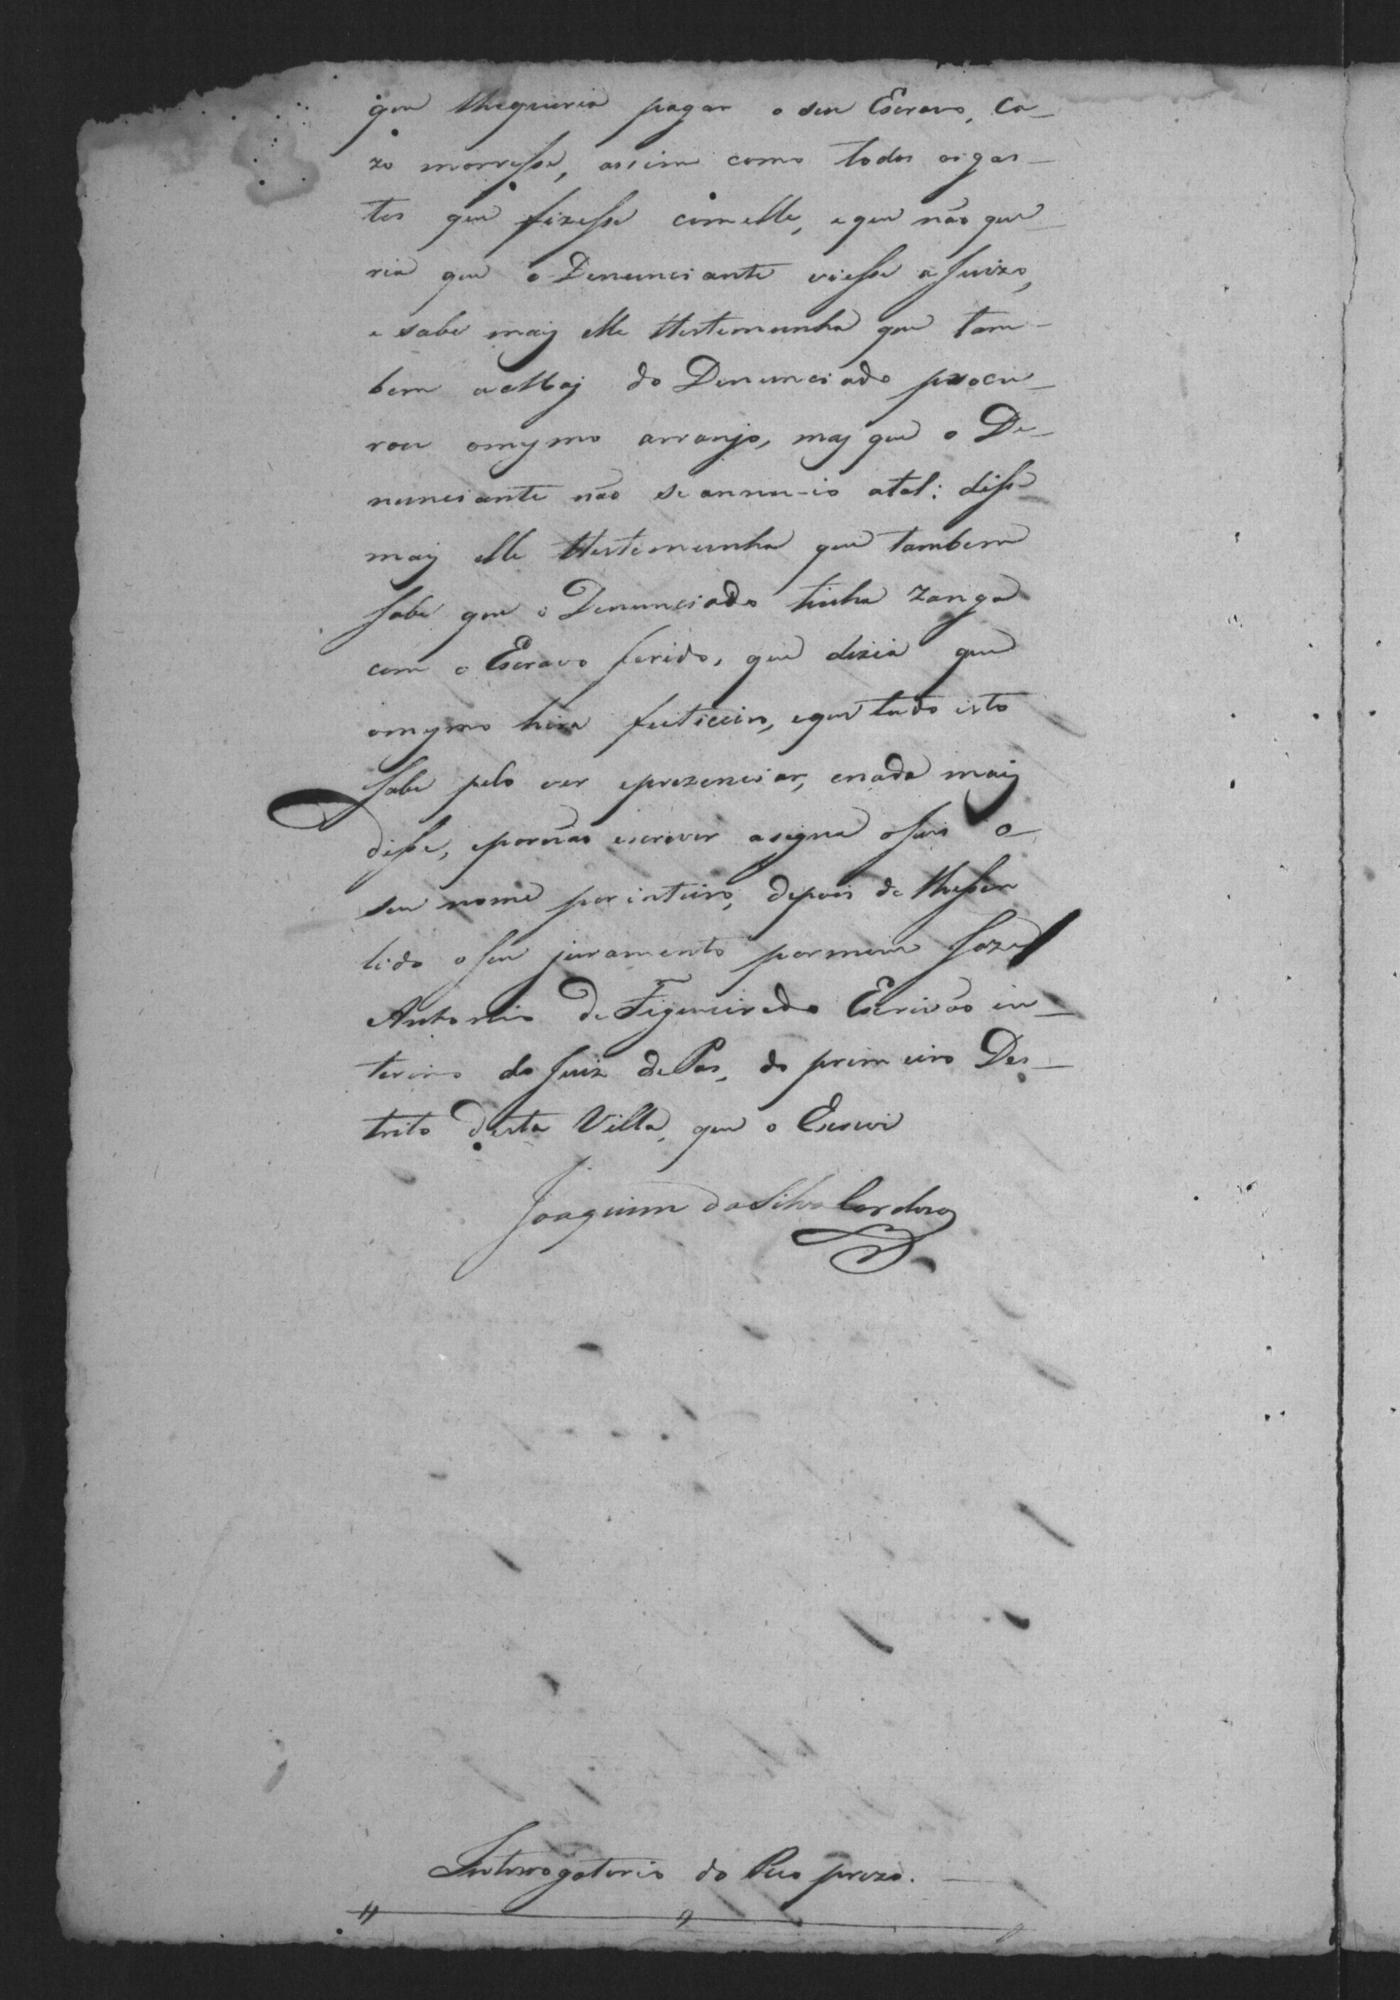 que lhequeria pagar o seu Escravo, Ca-
zo morresse, assim como todos osgas-
tos que fizesse comelle, eque não que-
ria que o Denunciante viesse aJuizo,
e sabe mais elle ttestemunha que tam-
bem aMaj do Denunciado procu-
rou omesmo arranjo, mas que o De-
nunciante não se annu-io atal: disse
mais elle ttestemunha que tambem
sabe que o Denunciado tinha zanga
com o Escravo ferido, que dizia que
omesmo hera feiticeiro, eque tudo isto
sabe pelo ver eprezenciar, enada mais
disse, epornão escrever asigna oJuis o
seu nome porinteiro, depois de lheser
lido oseu juramento pormim
Antonio de Figueiredo Escrivão in-
terino do Juiz dePas, do primeiro Des-
trito desta Villa, que o Escrevi
Joaquim daSilva Cardozo
Interrogatorio do Reo prezo.